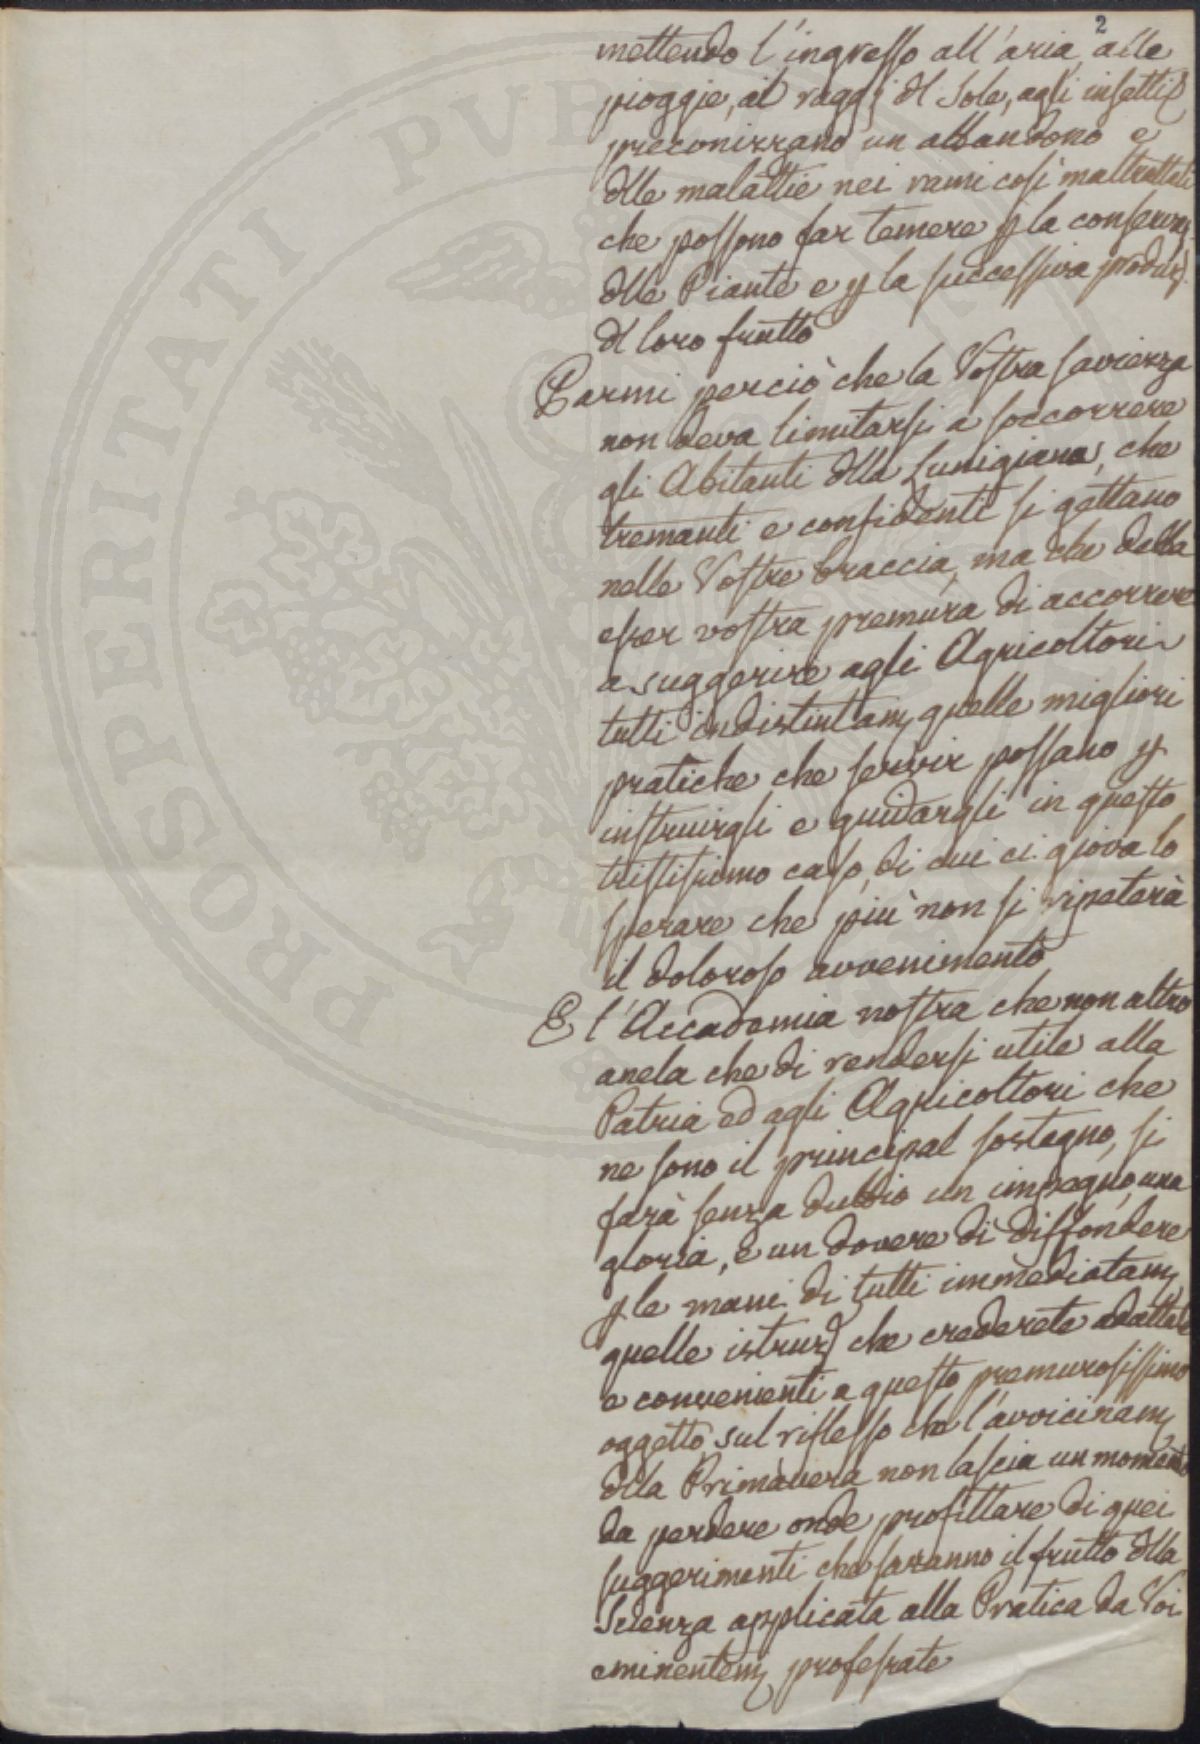 2
mettendo l'ingresso all'aria, alle
pioggie, ai raggj dl Sole, agli insetti,
preconizzano un abbandono e
dlle malattie nei rami così maltrattati
che possono far temere p la conservaz
dlle Piante e p la successiva produz.
dl loro frutto
Parmi perciò che la Vostra saviezza
non deva limitarsi a soccorrere
gli Abitanti dlla Lunigiana, che
tremanti e confidenti si gettano
nelle Vostre braccia, ma che debba
esser vostra premura di accorrere
a suggerire agli Agricoltori
tutti indistintam quelle migliori
pratiche che servir possano p
instruirgli e guidargli in questo
tristissimo caso, di cui ci giova lo
sperare che più non si ripeterà
il doloroso avvenimento
E l'Accademia nostra che non altro
anela che di rendersi utile alla
Patria ed agli Agricoltori che
ne sono il principal sostegno, si
farà senza dubbio un impegno, una
gloria, e un dovere di diffondere
p le mani di tutti immediatam
quelle istruz che crederete adattate
e convenienti a questo premurosissimo
oggetto sul riflesso che l'avvicinam
dlla Primavera non lascia un momento
da perdere onde profittare di quei
suggerimenti che saranno il frutto dlla
Scienza applicata alla Pratica da Voi
eminentem professate
PROSPERITATI PVB